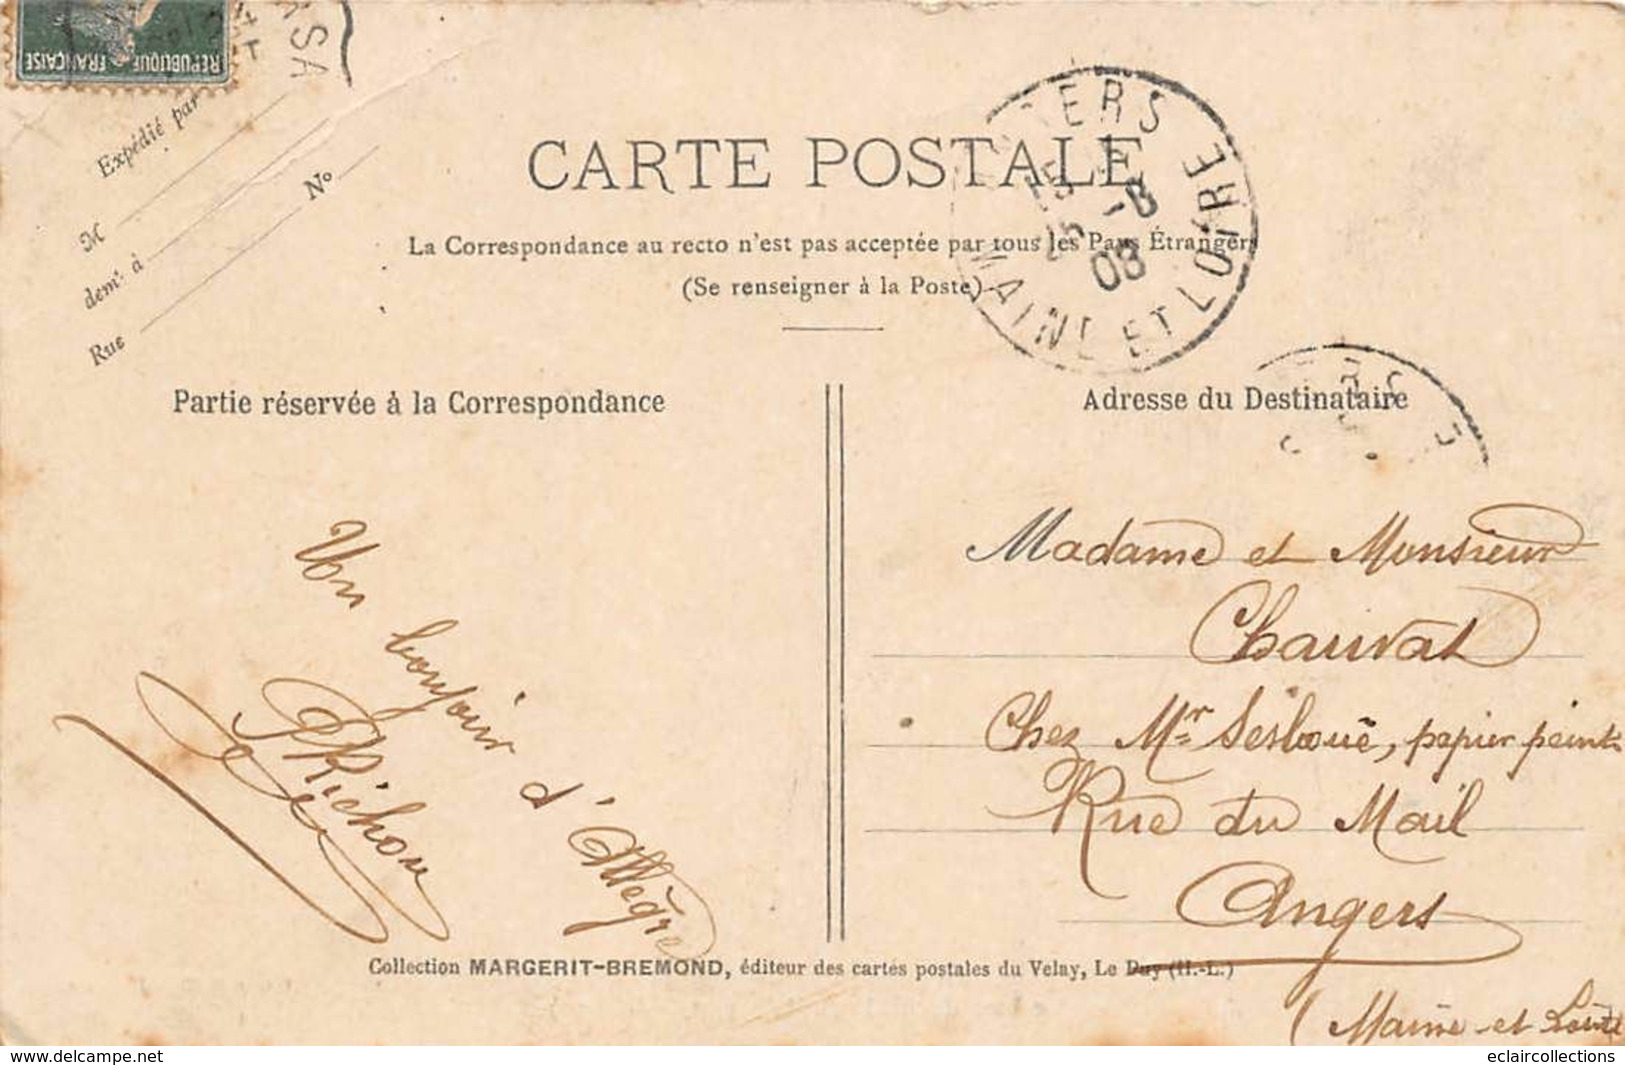 REPUBLIQUE FRANÇAISE
Expédié par
M
demt à
Rue No
CARTE POSTALE
La Correspondance au recto n'est pas acceptée par tous les Pays Étrangers
(Se renseigner à la Poste)
ERS
15
-8
08
MAINE ET LOIRE
Partie réservée à la Correspondance
Adresse du Destinataire
Un bonjour d'Allègre
Madame et Monsieur
Chauvat
Chez Mr Sesboüé, papier peint
Rue du Mail
Angers
(Maine-et-Loire)
Collection MARGERIT-BREMOND, éditeur des cartes postales du Velay, Le Puy (H.-L.)
eclaircollections
https://www.delcampe.net